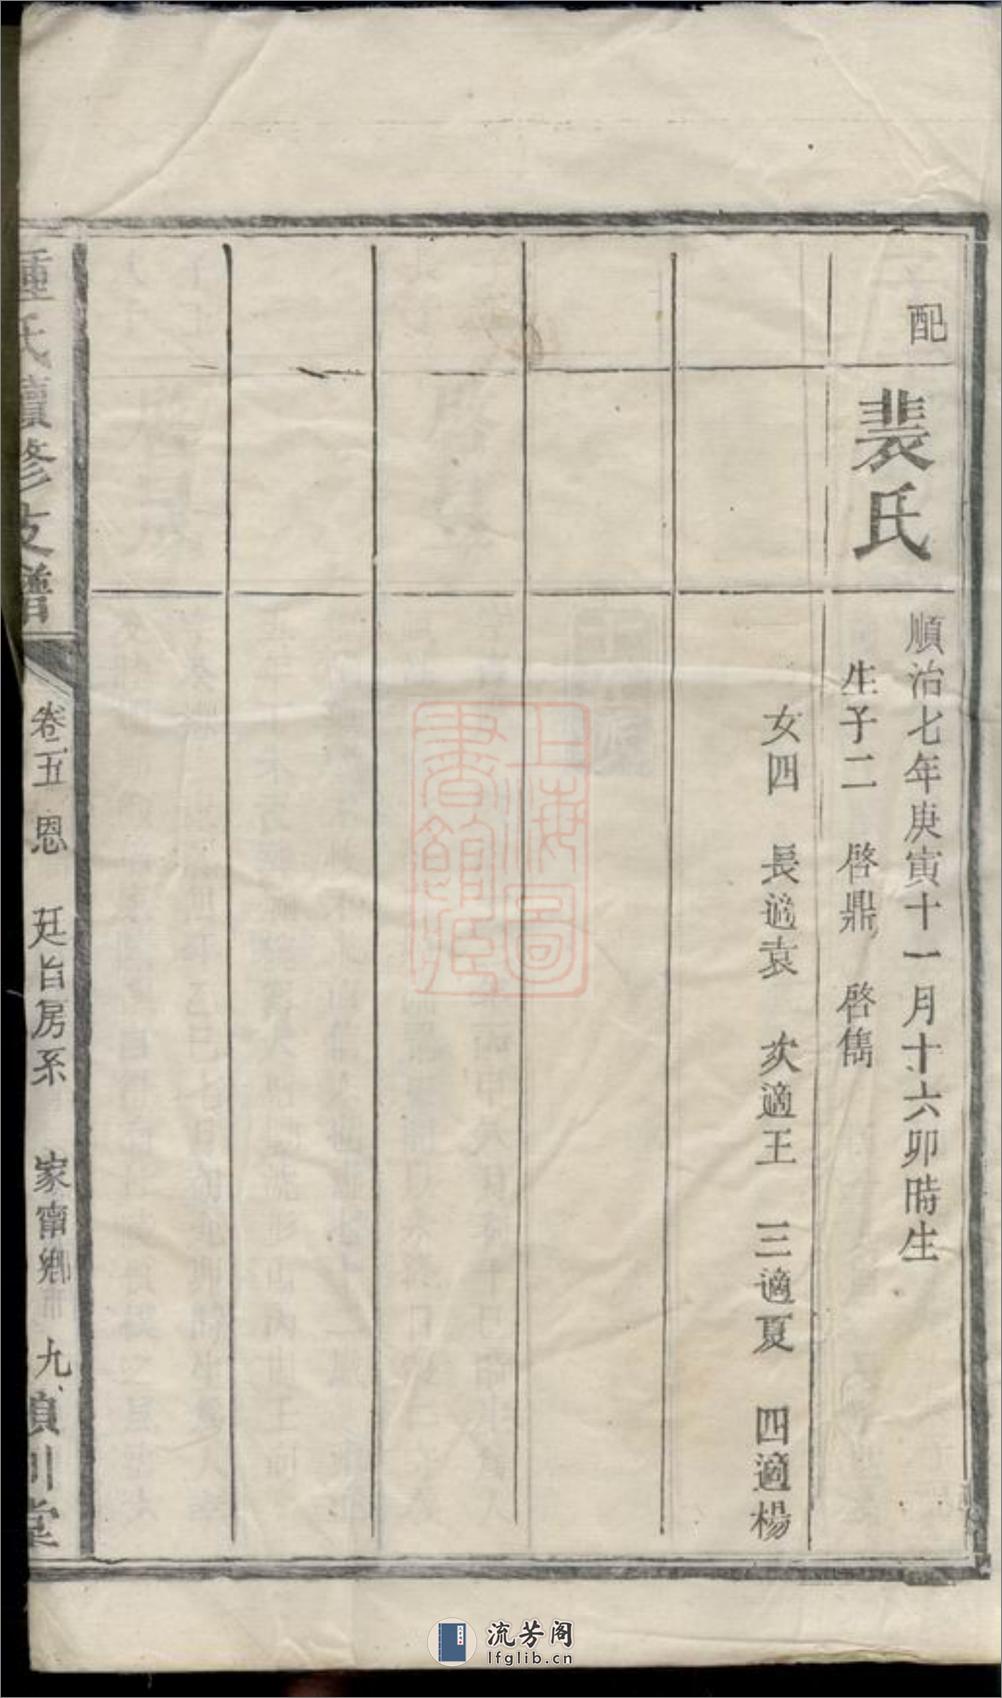 配
裴氏
順治七年庚寅十一月十六卯時生
生子二 啓鼎 啓儁
女四 長適袁 次適王 三適夏 四適楊
鍾氏續修支譜
卷五 恩 廷旨房系 家甯鄉 九 潁川堂
上海圖書館藏
流芳阁
lfglib.cn